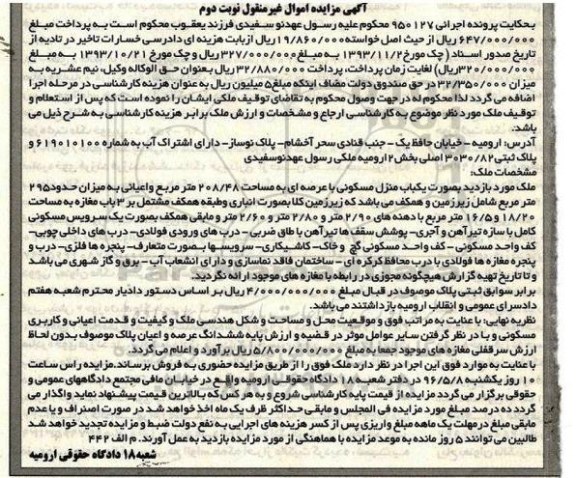 آگهی مزایده اموال غیرمنقول نوبت دوم
بحکایت پرونده اجرائی ۹۵۰۱۲۷ محکوم علیه رسول عهدنو سفیدی فرزند یعقوب محکوم است به پرداخت مبلغ
۶۴۷/۰۰۰/۰۰۰ ریال از حیث اصل خواسته ۱۹/۸۶۰/۰۰۰ ریال از بابت هزینه ای دادرسی خسارات تاخیر در تادیه از
تاریخ صدور اسناد (چک مورخ ۱۳۹۳/۱۱/۲ به مبلغ ۳۲۷/۰۰۰/۰۰۰ ریال و چک مورخ ۱۳۹۳/۱۰/۲۱ به مبلغ
۳۲۰/۰۰۰/۰۰۰ ریال) لغایت زمان پرداخت، پرداخت ۳۲/۸۸۰/۰۰۰ ریال بعنوان حق الوکاله وکیل، نیم عشریه به
میزان ۳۲/۳۵۰/۰۰۰ در حق صندوق دولت مضاف اینکه مبلغ ۵ میلیون ریال به عنوان هزینه کارشناسی در مرحله اجرا
اضافه می گردد لذا محکوم له در جهت وصول محکوم به تقاضای توقیف ملکی ایشان را نموده است که پس از استعلام و
توقیف ملک مورد نظر موضوع به کارشناسی ارجاع و مشخصات و ارزش ملک برابر هزینه کارشناسی به شرح ذیل می
باشد.
آدرس: ارومیه - خیابان حافظ یک - جنب قنادی سحر آخشام - پلاک نوساز - دارای اشتراک آب به شماره ۶۱۹۰۱۰۱۰۰ و
پلاک ثبتی ۳۰۳۰/۸۲ اصلی بخش ۲ ارومیه ملکی رسول عهدنوسفیدی
مشخصات ملک:
ملک مورد بازدید بصورت یکباب منزل مسکونی با عرصه ای به مساحت ۲۰۸/۴۸ متر مربع و اعیانی به میزان حدود ۲۹۵
متر مربع شامل زیرزمین و همکف می باشد که زیرزمین کلا بصورت انباری و طبقه همکف مشتمل بر ۳ باب مغازه به مساحت
۱۸/۲۰ و ۱۶/۵ متر مربع با دهنه های ۲/۹۰ متر و ۲/۸۰ متر و ۲/۶۰ متر و مابقی همکف بصورت یک سرویس مسکونی
کامل با سازه تیرآهن و آجری - پوشش سقف ها تیرآهن با طاق ضربی - درب های ورودی فولادی - درب های داخلی چوبی -
کف واحد مسکونی - کف واحد مسکونی گچ و خاک - کاشیکاری - سرویسها بصورت متعارف - پنجره ها فلزی - درب و
پنجره مغازه ها فولادی با درب محافظ کرکره ای - ساختمان فاقد نماسازی و دارای انشعاب آب - برق و گاز شهری می باشد
و تا تاریخ تهیه گزارش هیچگونه مجوزی در رابطه با مغازه های موجود ارائه نگردید.
برابر سوابق ثبتی پلاک موصوف در قبال مبلغ ۴/۰۰۰/۰۰۰/۰۰۰ ریال بر اساس دستور دادیار محترم شعبه هفتم
دادسرای عمومی و انقلاب ارومیه بازداشتند می باشد.
نظریه نهایی: با عنایت به مراتب فوق و موقعیت محل و مساحت و شکل هندسی ملک و کیفیت و قدمت اعیانی و کاربری
مسکونی و با در نظر گرفتن سایر عوامل موثر در قضیه و ارزش پایه ششدانگ عرصه و اعیان پلاک موصوف بدون لحاظ
ارزش سرقفلی مغازه های موجود جمعا به مبلغ ۵/۸۰۰/۰۰۰/۰۰۰ ریال برآورد و اعلام می گردد.
با عنایت به موارد فوق این اجرا در نظر دارد ملک فوق را از طریق مزایده حضوری به فروش برساند. مزایده راس ساعت
۱۰ روز یکشنبه ۹۶/۵/۸ در دفتر شعبه ۱۸ دادگاه حقوقی ارومیه واقع در خیابان مافی مجتمع دادگاههای عمومی و
حقوقی برگزار می گردد مزایده از قیمت پایه کارشناسی شروع و به هر کس که بالاترین قیمت پیشنهاد نماید واگذار می
گردد ده درصد مبلغ مورد مزایده فی المجلس و مابقی حداکثر ظرف یک ماه اخذ خواهد شد در صورت انصراف و یا عدم
مابقی مبلغ در مهلت یک ماهه مبلغ واریزی پس از کسر هزینه های اجرایی به نفع دولت ضبط و مزایده تجدید خواهد شد
طالبین می توانند ۵ روز مانده به موعد مزایده با هماهنگی از مورد مزایده بازدید به عمل آورند. م الف ۴۴۲
شعبه ۱۸ دادگاه حقوقی ارومیه